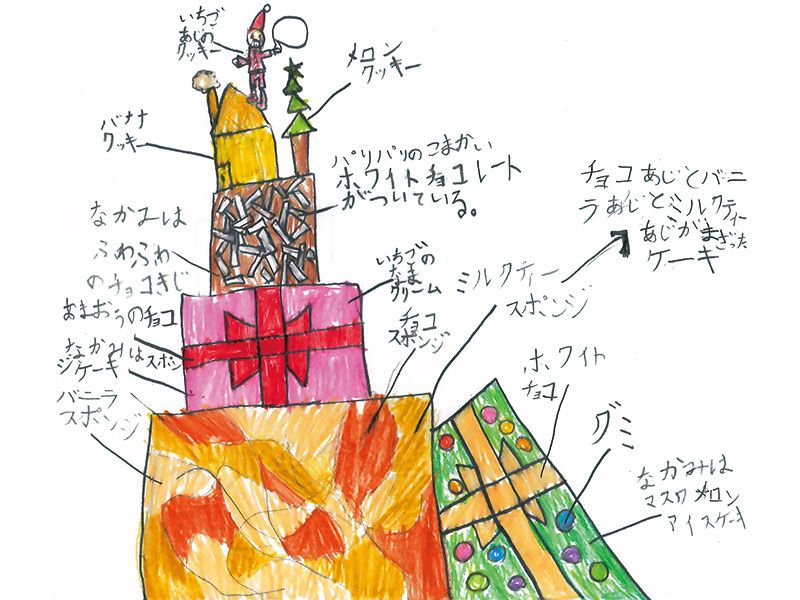 いちご
あじの
クッキー
メロン
クッキー
バナナ
クッキー
パリパリのこまかい
ホワイトチョコレート
がついている。
チョコあじとバニ
ラあじとミルクティー
あじがまざった
ケーキ
なかみは
ふわふわ
のチョコきじ
いちごの
なま
クリーム
ミルクティー
スポンジ
あまおうのチョコ
チョコ
スポンジ
なかみはスポン
ジケーキ
バニラ
スポンジ
ホワイト
チョコ
グミ
なかみは
マスクメロン
アイスケーキ